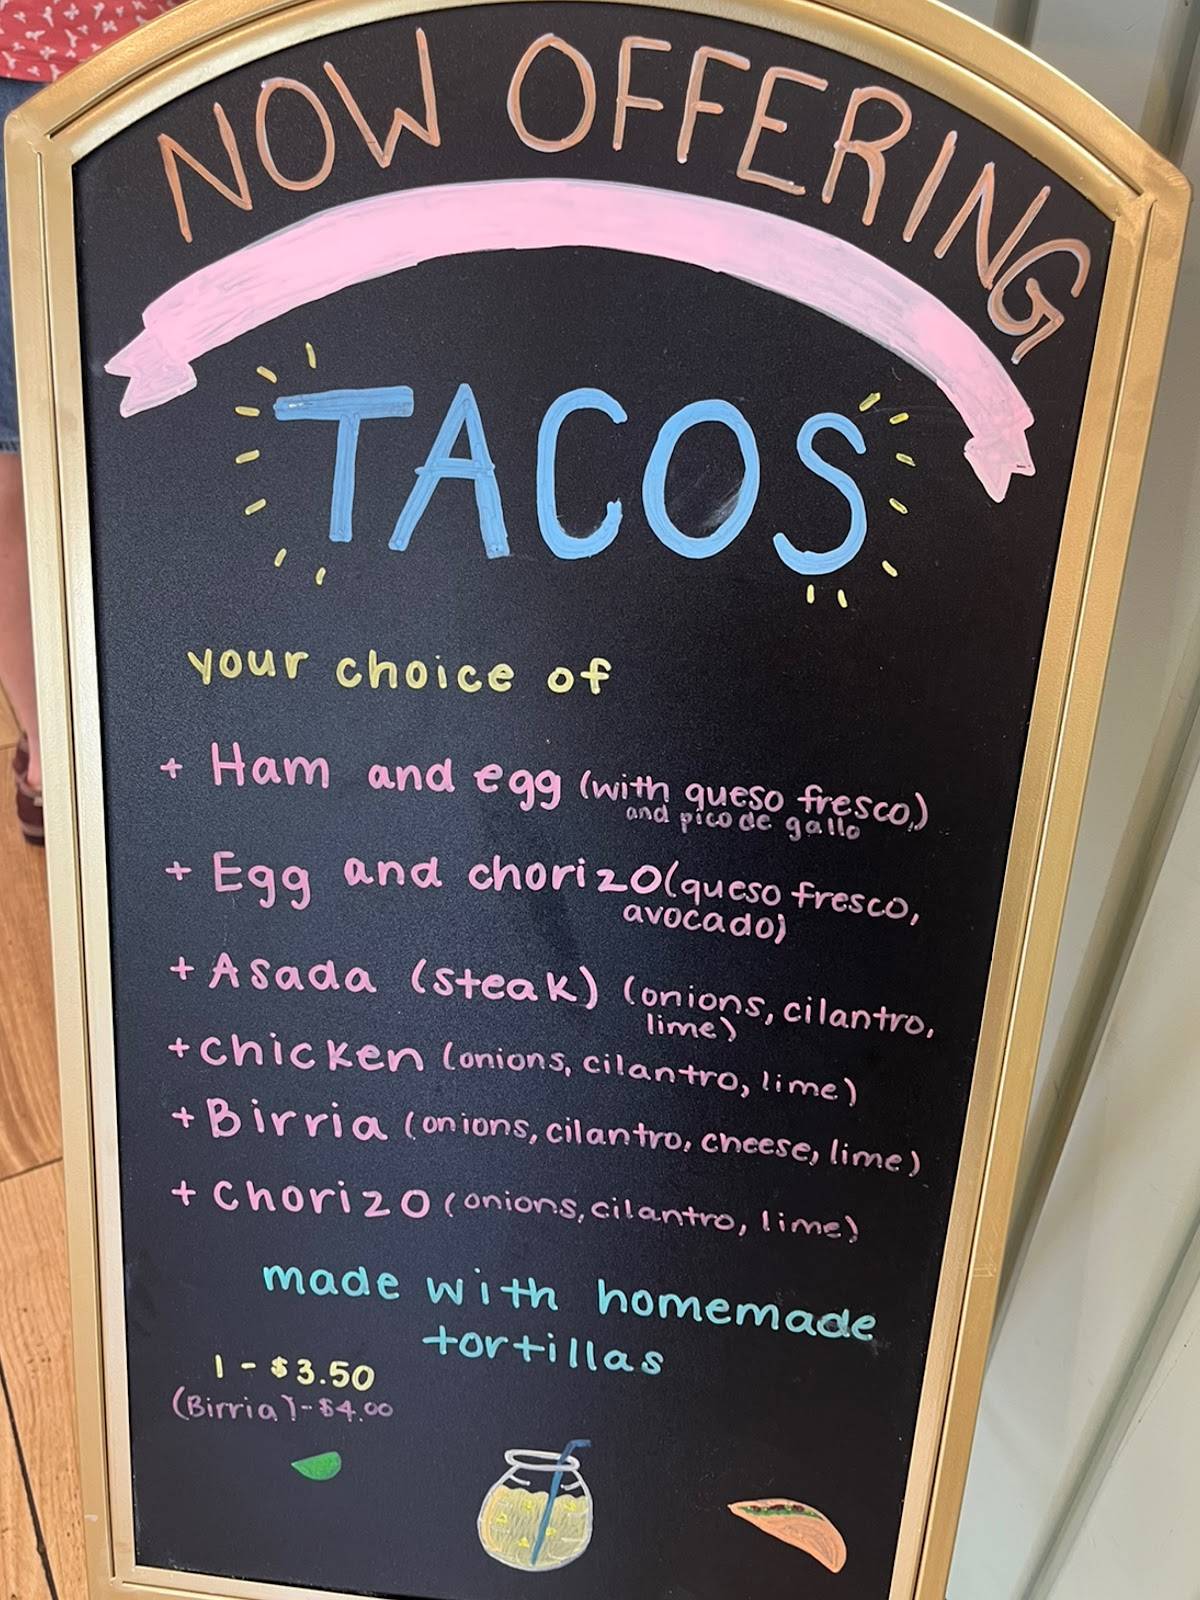 NOW OFFERING
TACOS
your choice of
+ Ham and egg (with queso fresco,)
and pico de gallo
+ Egg and chorizo (queso fresco,
avocado)
+ Asada (steak) (onions, cilantro,
lime)
+ chicken (onions, cilantro, lime)
+ Birria (onions, cilantro, cheese, lime)
+ Chorizo (onions, cilantro, lime)
made with homemade
tortillas
1 - $3.50
(Birria) - $4.00